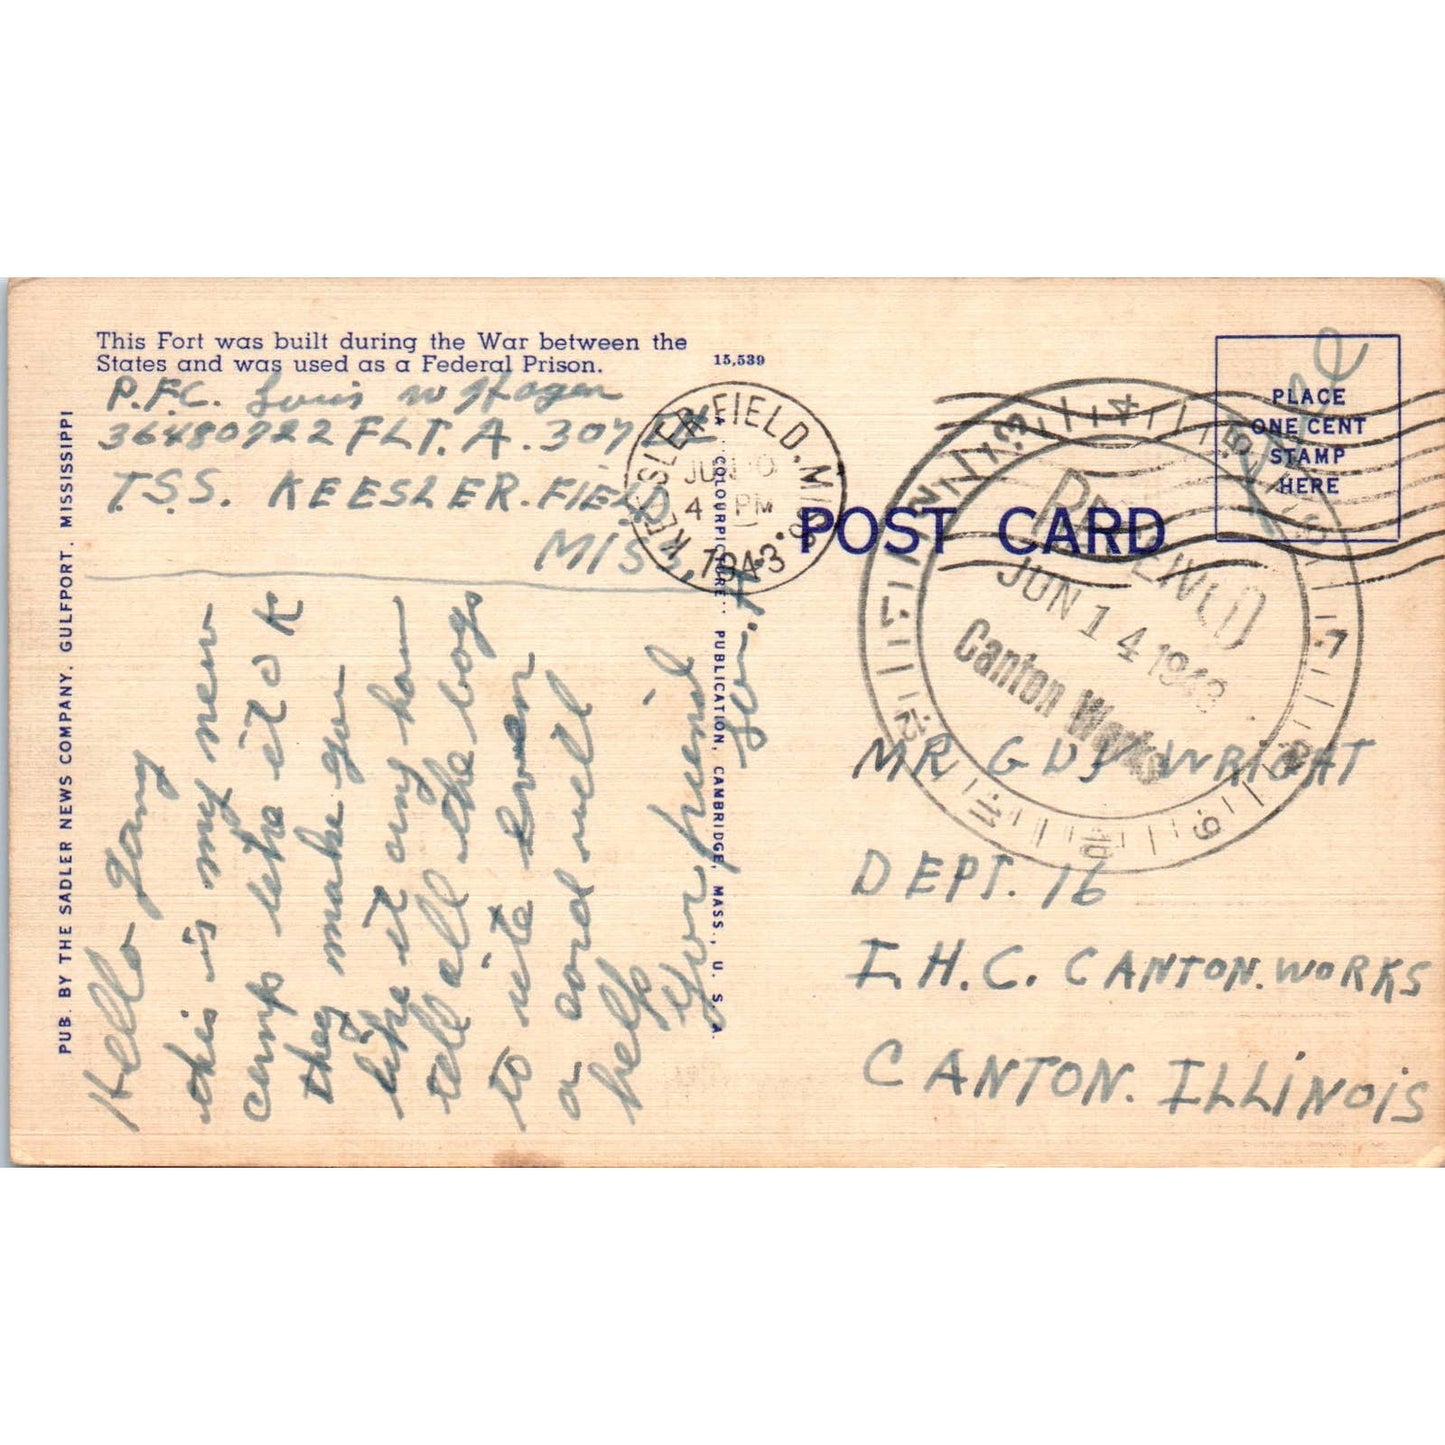 This Fort was built during the War between the
States and was used as a Federal Prison.
15,539
P.F.C. Louis W Hagen
36480722 FLT. A. 307
T.S.S. KEESLER. FIELD
MISS.
Hello gang
this is my new
camp like it O K
they make you
like it any how
tell all the boys
to write even
a card will
help
Your friend
Lou. H.
PUB. BY THE SADLER NEWS COMPANY, GULFPORT, MISSISSIPPI
COLOURPICTURE PUBLICATION, CAMBRIDGE, MASS., U. S. A.
KEESLER FIELD. MISS.
JUN
4 PM
1943
POST CARD
PLACE
ONE CENT
STAMP
HERE
Free
JUN 14 1943
Canton Works
1 2 3 4 5 6 7 8 9 10 11 12
MR GUY WRIGHT
DEPT. 16
I. H. C. CANTON. WORKS
CANTON. ILLINOIS